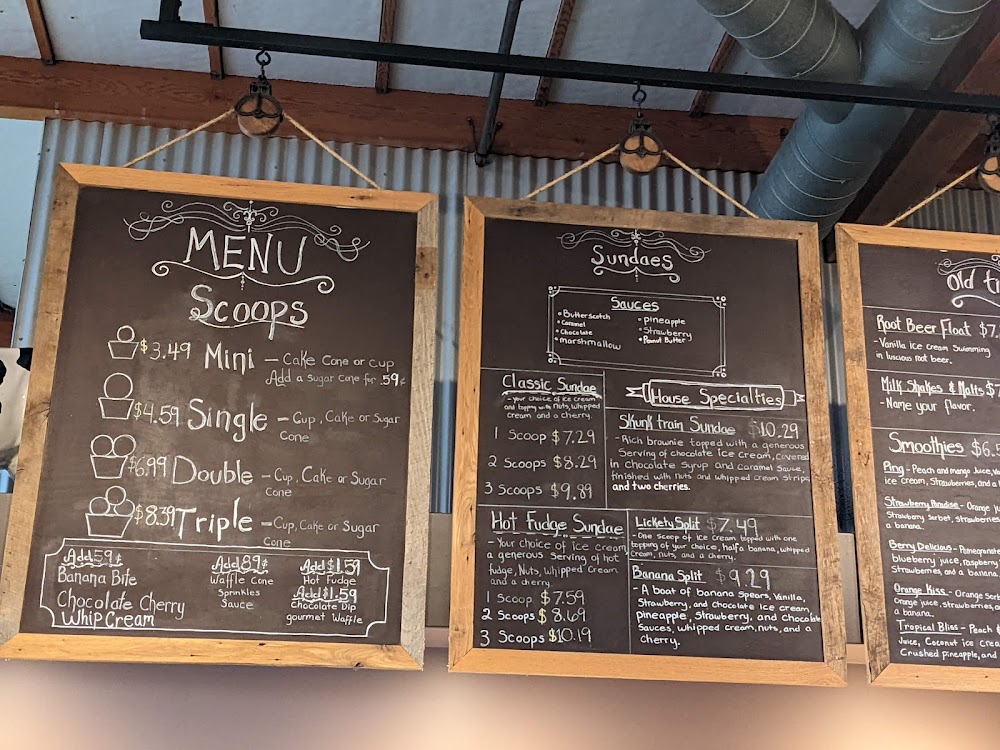 MENU
Scoops
$3.49 Mini - Cake Cone or cup
Add a sugar cone for .59¢
$4.59 Single - Cup, Cake or Sugar
Cone
$6.99 Double - Cup, Cake or Sugar
Cone
$8.39 Triple - Cup, Cake or Sugar
Cone
Add 59¢
Banana Bite
Chocolate Cherry
Whip Cream
Add 89¢
Waffle Cone
Sprinkles
Sauce
Add $1.39
Hot Fudge
Add $1.59
Chocolate Dip
gourmet Waffle
Sundaes
Sauces
• Butterscotch
• Caramel
• Chocolate
• marshmallow
• pineapple
• Strawberry
• Peanut Butter
Classic Sundae
- your choice of ice cream
and topping with Nuts, whipped
cream and a cherry
1 Scoop $7.29
2 Scoops $8.29
3 Scoops $9.89
Hot Fudge Sundae
- Your choice of ice cream
a generous Serving of hot
fudge, Nuts, whipped Cream
and a cherry.
1 Scoop $7.59
2 Scoops $8.69
3 Scoops $10.19
House Specialties
Skunk train Sundae $10.29
- Rich brownie topped with a generous
Serving of chocolate Ice Cream, covered
in Chocolate Syrup and caramel Sauce,
finished with nuts and whipped cream stripe
and two cherries.
Lickety Split $7.49
- One Scoop of Ice Cream topped with one
topping of your choice, half a banana, whipped
cream, nuts, and a cherry.
Banana Split $9.29
- A boat of banana Spears, Vanilla,
Strawberry, and Chocolate Ice cream,
pineapple, Strawberry, and Chocolate
Sauces, whipped cream, nuts, and a
cherry.
Old
Root Beer Float $7.
- Vanilla ice cream Swimming
in luscious root beer.
Milk Shakes & Malts $7
- Name your flavor.
Smoothies $6.5
Ping - Peach and mango Juice,
ice cream, Strawberries, and a
Strawberry Paradise - Orange
Strawberry Sorbet, strawberries
a banana.
Berry Delicious - Pomegranate
blueberry juice, raspberry
Strawberries, and a banana
Orange Kiss - Orange
Orange juice, strawberries, a
a banana.
Tropical Bliss - Peach
Juice, Coconut ice
Crushed pineapple, and